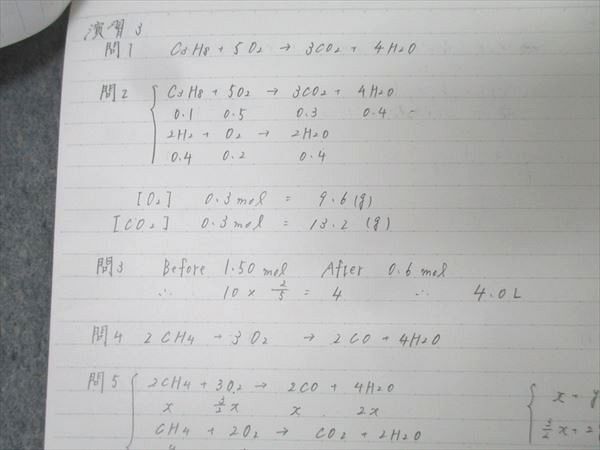 演習3
問1 C3H8 + 5O2 → 3CO2 + 4H2O
問2 C3H8 + 5O2 → 3CO2 + 4H2O
0.1 0.5 0.3 0.4
2H2 + O2 → 2H2O
0.4 0.2 0.4
[O2] 0.3 mol = 9.6 (g)
[CO2] 0.3 mol = 13.2 (g)
問3 Before 1.50 mol After 0.6 mol
∴ 10 × 2/5 = 4 ∴ 4.0 L
問4 2CH4 + 3O2 → 2CO + 4H2O
問5 2CH4 + 3O2 → 2CO + 4H2O
x 3/2x x 2x
CH4 + 2O2 → CO2 + 2H2O
x + y
3/2x + 2